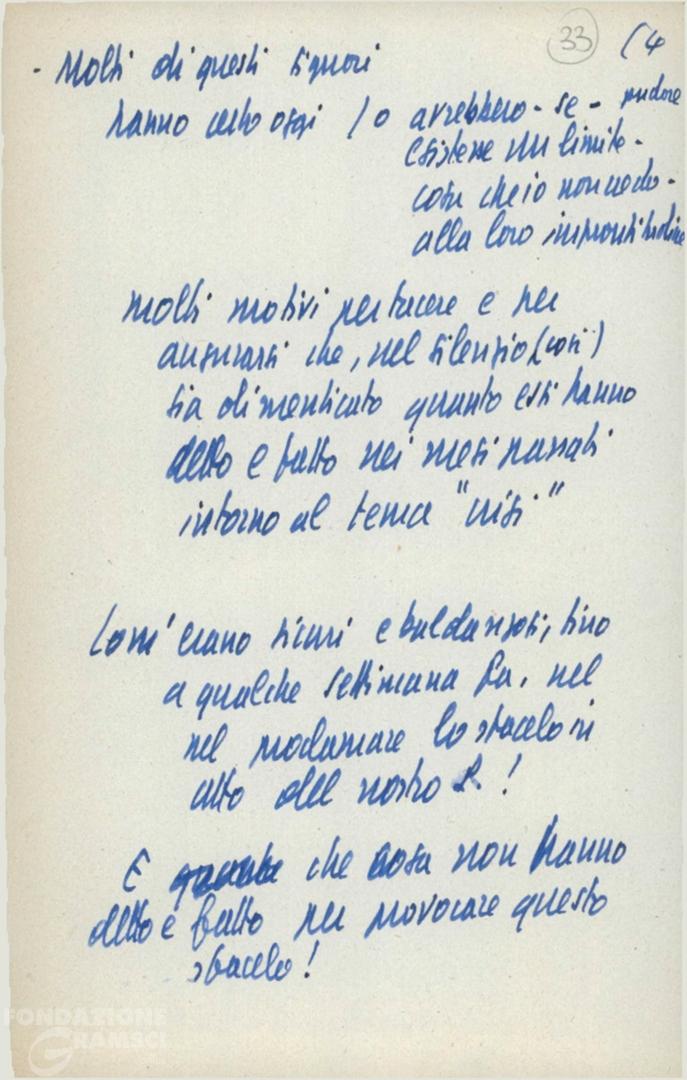 33 (4
- Molti di questi signori
hanno certo oggi / o avrebbero - se - pudore
esistesse un limite -
cosa che io non vedo -
alla loro improntitudine
molti motivi per tacere e per
augurarsi che, nel silenzio (così)
sia dimenticato quanto essi hanno
detto e fatto nei mesi passati
intorno al tema "crisi"
Com'erano sicuri e baldanzosi, sino
a qualche settimana fa, nel
nel proclamare lo sfacelo in
atto del nostro P. !
E che cosa non hanno
detto e fatto per provocare questo
sfacelo!
FONDAZIONE
GRAMSCI